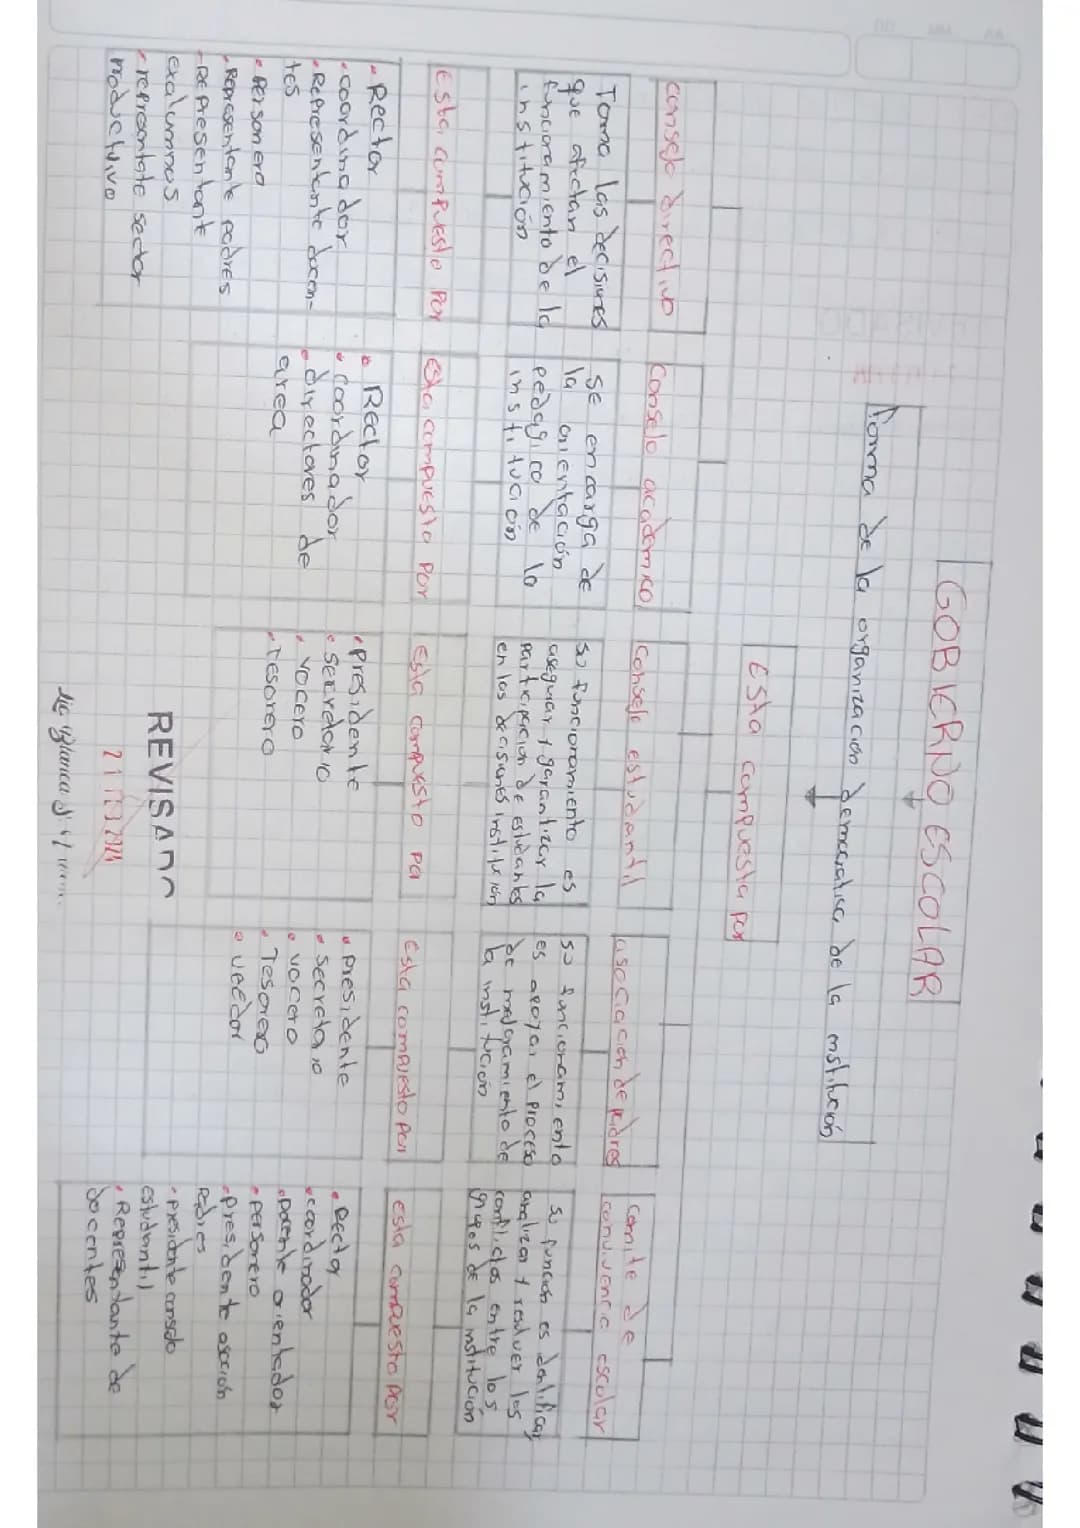 GOBIERNO ESCOLAR
Forma de la organización democratica de la institución
Esta compuesta por
consejo directivo
Toma las decisiones
que afectan el
funcionamiento de la
institución
Esta compuesto por
• Rector
• coordinador
• Representante docen-
tes
• Personero
• Representante padres
• Representante
exalumnos
• representate sector
productivo
Consejo academico
se encarga de
la orientación
pedagica de la
institución
Esta compuesto por
• Rector
• coordinador
• directores de
area
Consejo estudiantil
su funcionamiento es
asegurar y garantizar la
participacion de estudiantes
en las decisiones institución
Esta compuesto por
• Presidente
• Secretario
• vocero
• Tesorero
asociacion de padres
su funcionamiento
es apoyar el proceso
de mejoramiento de
la institución
Esta compuesto por
• presidente
• secretario
• vocero
• Tesorero
• veedor
Comite de
convivencia escolar
su función es identificar
analizar y resolver los
conflictos entre los
grupos de la institución
esta compuesto por
• Rector
• coordinador
• Docente orientador
• personero
• presidente asoción
padres
• presidente consejo
estudiantil
• Representante de
docentes
REVISADO